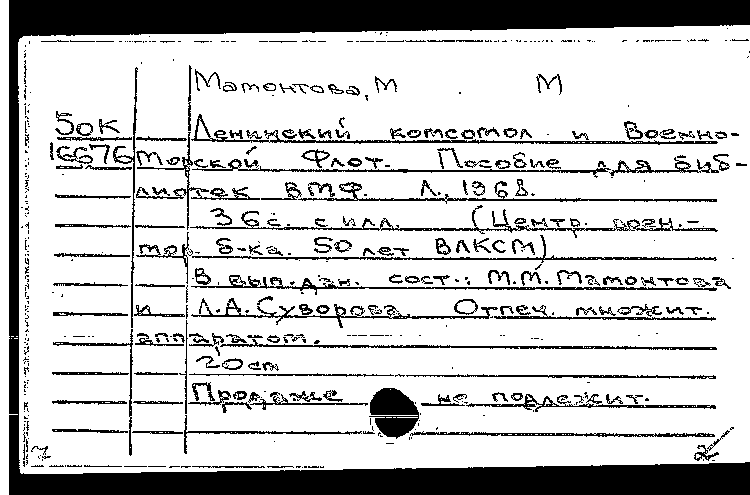 Мамонтова, М М
50К Ленинский комсомол и Военно-
16676 морской Флот. Пособие для биб-
лиотек ВМФ. Л., 1968.
36с. с илл. (Центр. воен.-
мор. б-ка. 50 лет ВЛКСМ)
В вып. дан. сост.: М.М. Мамонтова
и Л.А. Суворова. Отпеч. множит.
аппаратом.
20 cm
Продаже не подлежит.
7 2